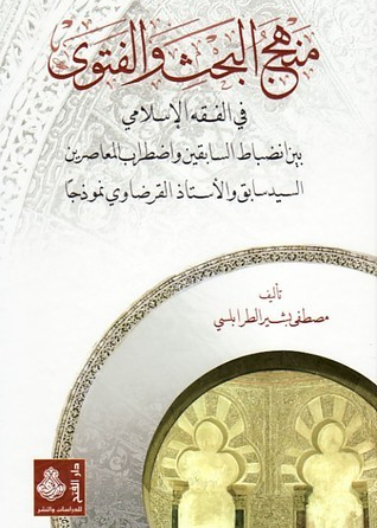 منهج البحث والفتوى
في الفقه الإسلامي
بين انضباط السابقين واضطراب المعاصرين
السيد سابق والأستاذ القرضاوي نموذجًا
تأليف
مصطفى بشير الطرابلسي
دار الفتح
للدراسات والنشر